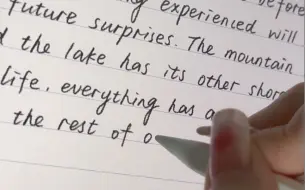 before
experienced will
future surprises. The mountain
the lake has its other shor
life, everything has a
the rest of o